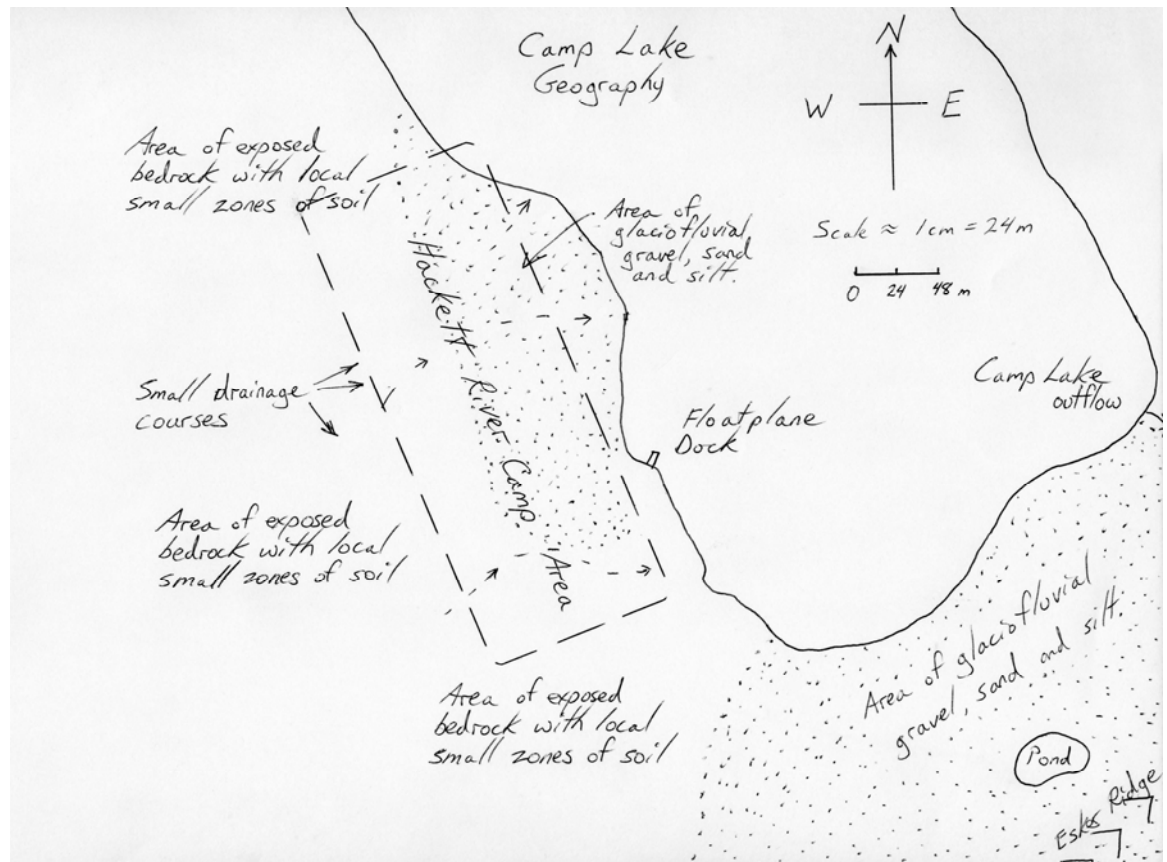 Camp Lake
Geography
N
W
E
Area of exposed
bedrock with local
small zones of soil
Area of
glaciofluvial
gravel, sand
and silt.
Scale ≈ 1cm = 24m
0 24 48 m
Hackett River Camp Area
Small drainage
courses
Camp Lake
outflow
Floatplane
Dock
Area of exposed
bedrock with local
small zones of soil
Area of exposed
bedrock with local
small zones of soil
Area of glaciofluvial
gravel, sand and silt.
Pond
Esker Ridge